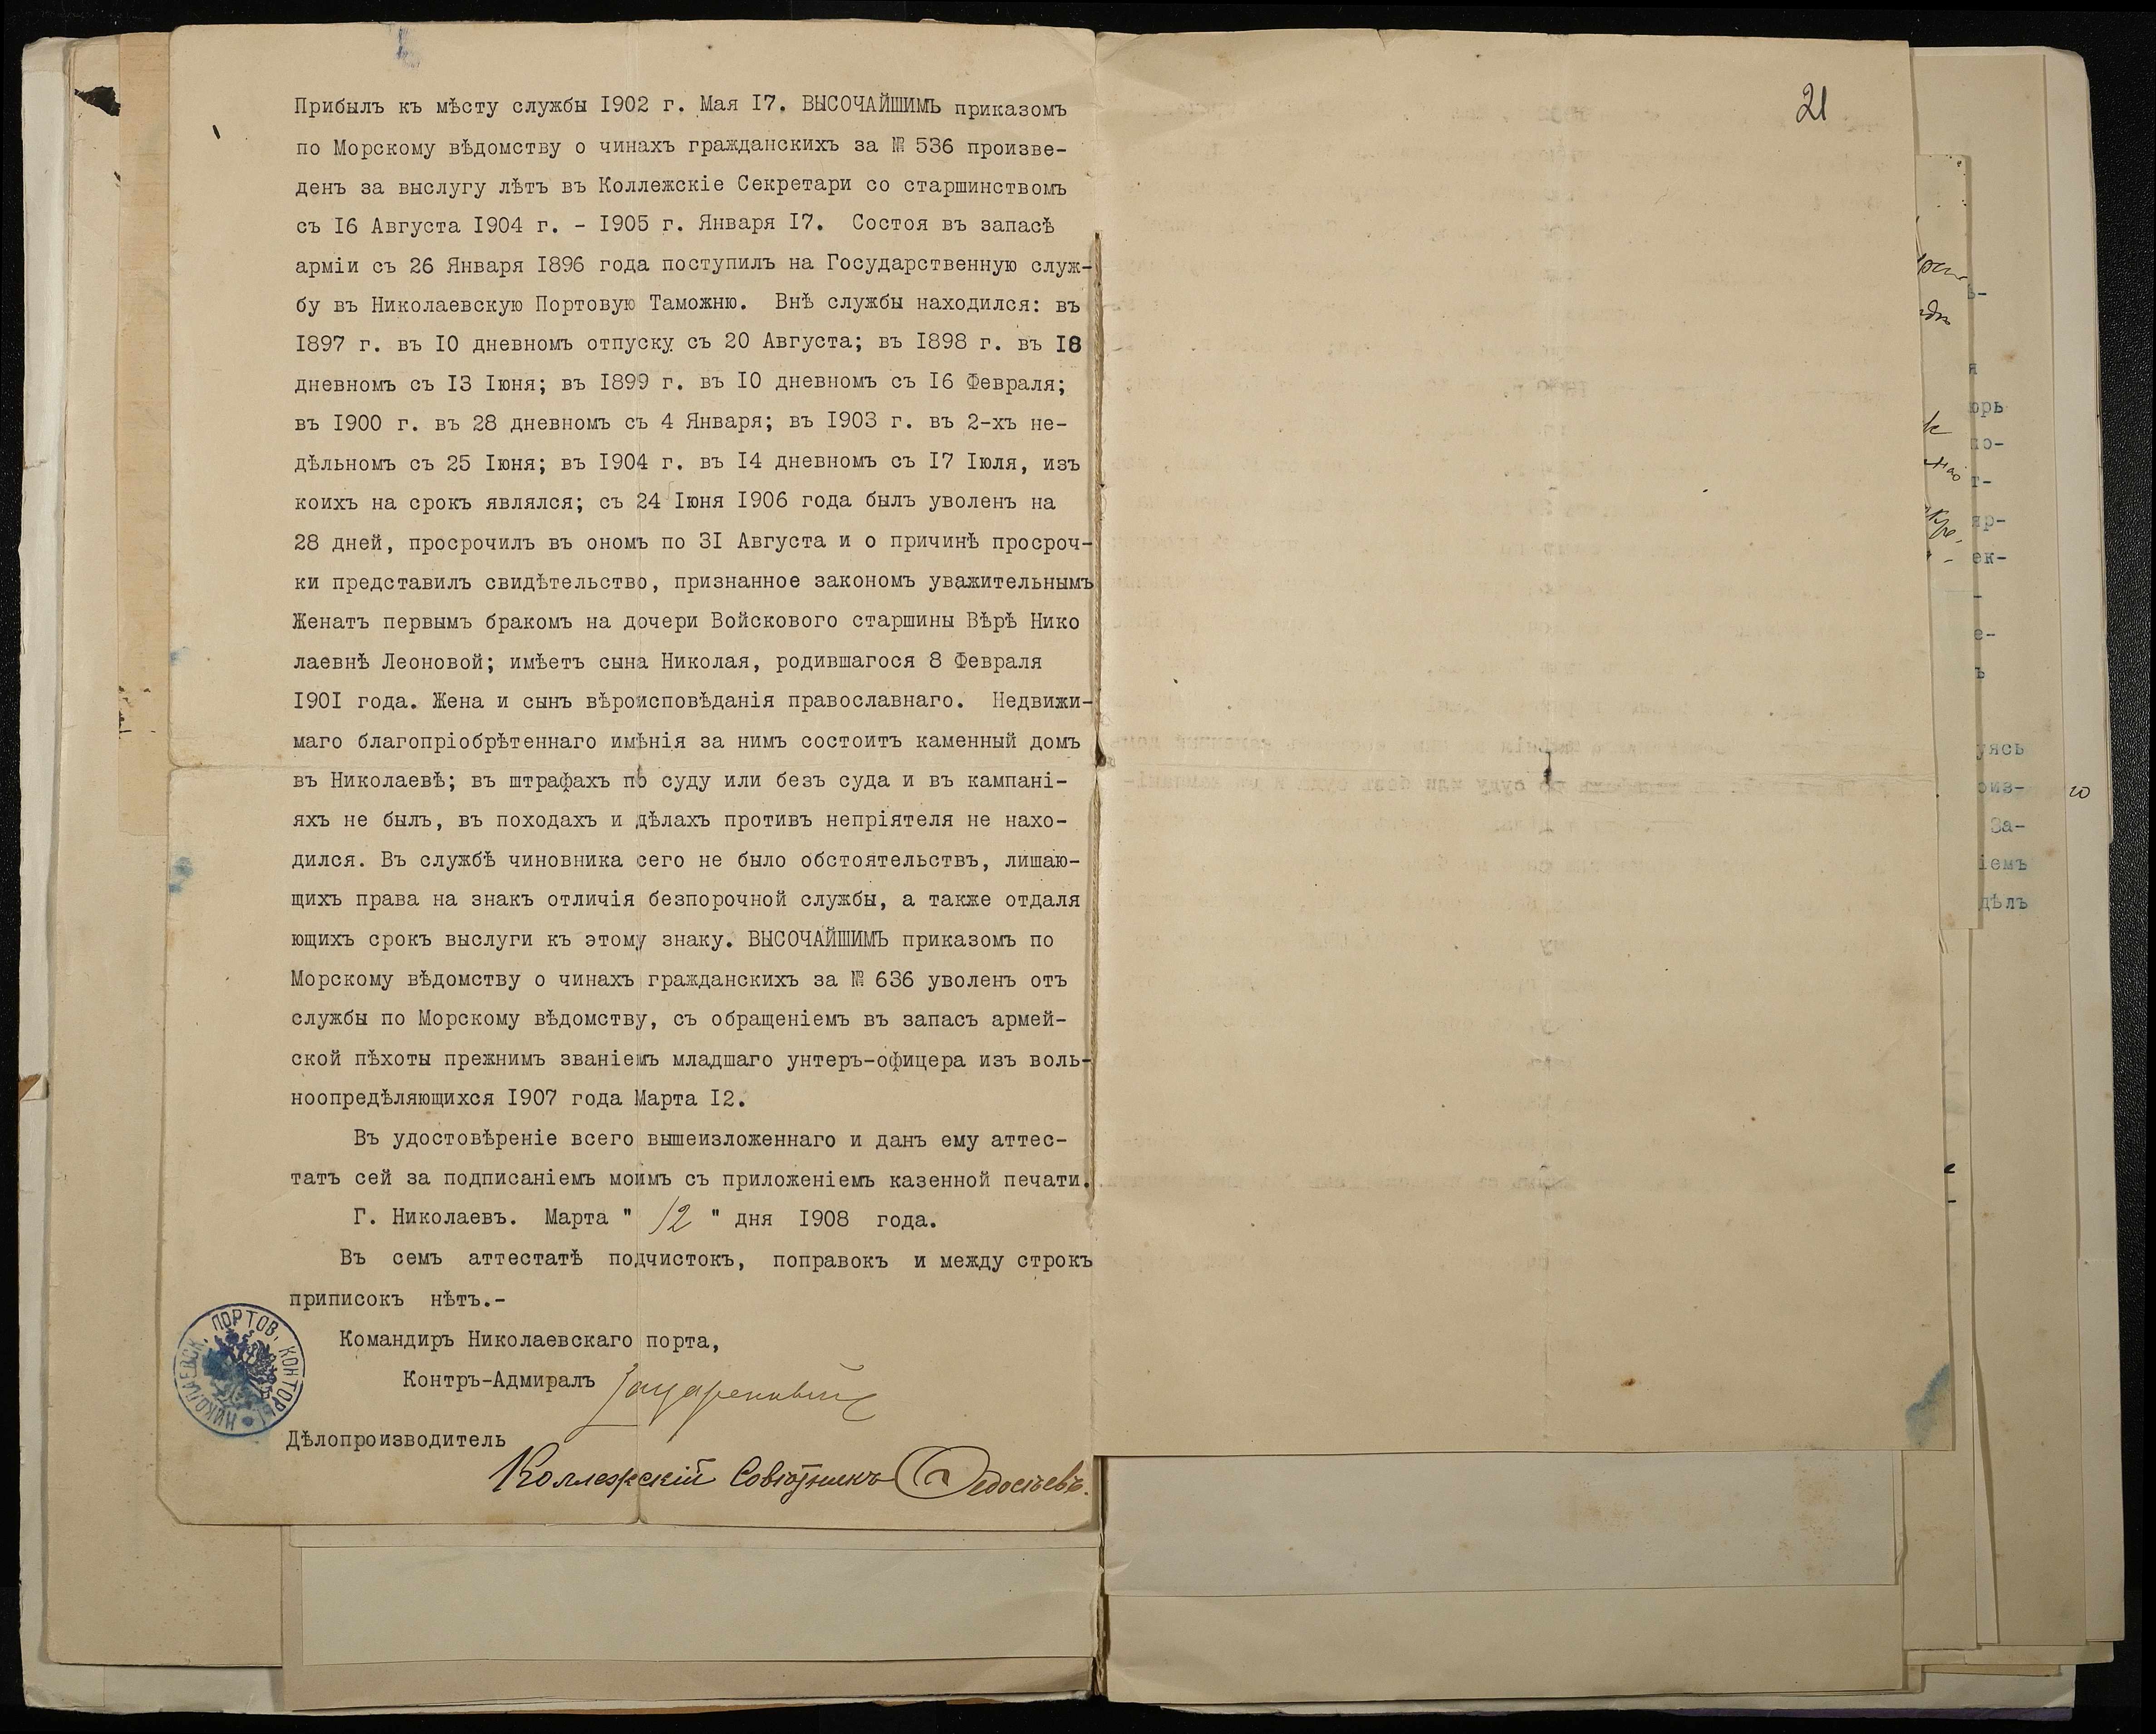 21
Прибылъ къ мѣсту службы 1902 г. Мая 17. ВЫСОЧАЙШИМЪ приказомъ
по Морскому вѣдомству о чинахъ гражданскихъ за № 536 произве-
денъ за выслугу лѣтъ въ Коллежскіе Секретари со старшинствомъ
съ 16 Августа 1904 г. - 1905 г. Января 17. Состоя въ запасѣ
арміи съ 26 Января 1896 года поступилъ на Государственную служ-
бу въ Николаевскую Портовую Таможню. Внѣ службы находился: въ
1897 г. въ 10 дневномъ отпуску съ 20 Августа; въ 1898 г. въ 18
дневномъ съ 13 Іюня; въ 1899 г. въ 10 дневномъ съ 16 Февраля;
въ 1900 г. въ 28 дневномъ съ 4 Января; въ 1903 г. въ 2-хъ не-
дѣльномъ съ 25 Іюня; въ 1904 г. въ 14 дневномъ съ 17 Іюля, изъ
коихъ на срокъ являлся; съ 24 Іюня 1906 года былъ уволенъ на
28 дней, просрочилъ въ ономъ по 31 Августа и о причинѣ просроч-
ки представилъ свидѣтельство, признанное закономъ уважительнымъ
Женатъ первымъ бракомъ на дочери Войскового старшины Вѣрѣ Нико
лаевнѣ Леоновой; имѣетъ сына Николая, родившагося 8 Февраля
1901 года. Жена и сынъ вѣроисповѣданія православнаго. Недвижи-
маго благопріобрѣтеннаго имѣнія за нимъ состоитъ каменный домъ
въ Николаевѣ; въ штрафахъ по суду или безъ суда и въ кампані-
яхъ не былъ, въ походахъ и дѣлахъ противъ непріятеля не нахо-
дился. Въ службѣ чиновника сего не было обстоятельствъ, лишаю-
щихъ права на знакъ отличія безпорочной службы, а также отдаля
ющихъ срокъ выслуги къ этому знаку. ВЫСОЧАЙШИМЪ приказомъ по
Морскому вѣдомству о чинахъ гражданскихъ за № 636 уволенъ отъ
службы по Морскому вѣдомству, съ обращеніемъ въ запасъ армей-
ской пѣхоты прежнимъ званіемъ младшаго унтеръ-офицера изъ воль-
ноопредѣляющихся 1907 года Марта 12.
Въ удостовѣреніе всего вышеизложеннаго и данъ ему аттес-
татъ сей за подписаніемъ моимъ съ приложеніемъ казенной печати.
Г. Николаевъ. Марта " 12 " дня 1908 года.
Въ семъ аттестатѣ подчистокъ, поправокъ и между строкъ
приписокъ нѣтъ.-
Командиръ Николаевскаго порта,
Контръ-Адмиралъ
Дѣлопроизводитель
Коллежскій Совѣтникъ Ѳедосѣевъ.
НИКОЛАЕВСК. ПОРТОВ. КОНТОРЫ
орь
ко-
т-
яр-
ек-
е-
ъ
уясь
оиз-
За-
іемъ
дѣлъ